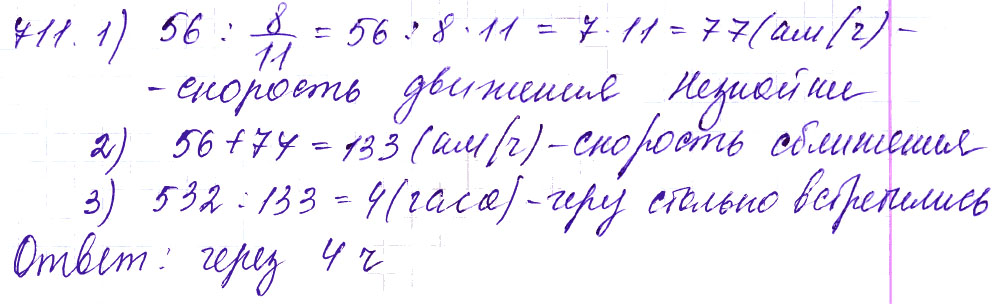 711. 1) 56 : 8/11 = 56 : 8 · 11 = 7 · 11 = 77 (км/ч) -
- скорость движения Незнайки
2) 56 + 77 = 133 (км/ч) - скорость сближения
3) 532 : 133 = 4 (часа) - чеpу столько встретились
Ответ: через 4 ч